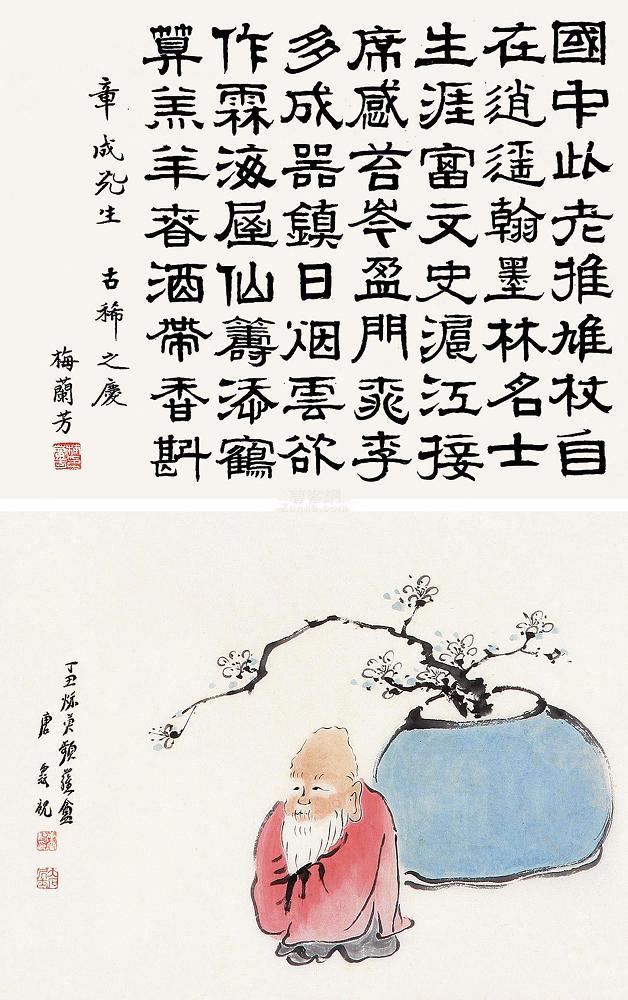 國中此老推鳩杖自
在逍遥翰墨林名士
生涯富文史滬江接
席感苔岑盈門桃李
多成器鎮日烟雲欲
作霖海屋仙籌添鶴
算羔羊春酒帶香斟
章成先生 古稀之慶
梅蘭芳
丁丑
唐